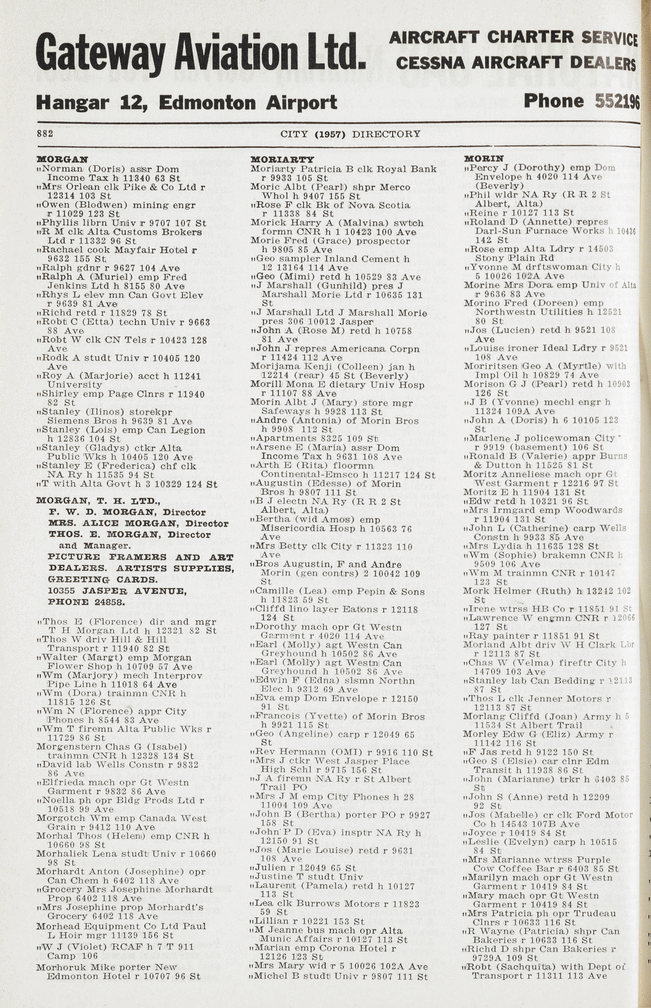 Gateway Aviation Ltd.
AIRCRAFT CHARTER SERVICE
CESSNA AIRCRAFT DEALERS
Hangar 12, Edmonton Airport
Phone 552196
882
CITY (1957) DIRECTORY
MORGAN
"Norman (Doris) assr Dom
Income Tax h 11340 63 St
"Mrs Orlean clk Pike & Co Ltd r
12314 103 St
"Owen (Blodwen) mining engr
r 11029 123 St
"Phyllis librn Univ r 9707 107 St
"R M clk Alta Customs Brokers
Ltd r 11332 96 St
"Rachael cook Mayfair Hotel r
9632 155 St
"Ralph gdnr r 9627 104 Ave
"Ralph A (Muriel) emp Fred
Jenkins Ltd h 8155 80 Ave
"Rhys L elev mn Can Govt Elev
r 9639 81 Ave
"Richd retd r 11829 78 St
"Robt C (Etta) techn Univ r 9663
88 Ave
"Robt W clk CN Tels r 10423 128
Ave
"Rodk A studt Univ r 10405 120
Ave
"Roy A (Marjorie) acct h 11241
University
"Shirley emp Page Clnrs r 11940
82 St
"Stanley (Ilinos) storekpr
Siemens Bros h 9639 81 Ave
"Stanley (Lois) emp Can Legion
h 12836 104 St
"Stanley (Gladys) ctkr Alta
Public Wks h 10405 120 Ave
"Stanley E (Frederica) chf clk
NA Ry h 11535 94 St
"T with Alta Govt h 3 10329 124 St
MORGAN, T. H. LTD.,
F. W. D. MORGAN, Director
MRS. ALICE MORGAN, Director
THOS. E. MORGAN, Director
and Manager.
PICTURE FRAMERS AND ART
DEALERS. ARTISTS SUPPLIES,
GREETING CARDS.
10355 JASPER AVENUE,
PHONE 24858.
"Thos E (Florence) dir and mgr
T H Morgan Ltd h 12321 82 St
"Thos W driv Hill & Hill
Transport r 11940 82 St
"Walter (Margt) emp Morgan
Flower Shop h 10709 57 Ave
"Wm (Marjory) mech Interprov
Pipe Line h 11018 64 Ave
"Wm (Dora) trainmn CNR h
11815 126 St
"Wm N (Florence) appr City
Phones h 8544 83 Ave
"Wm T firemn Alta Public Wks r
11729 86 St
Morgenstern Chas G (Isabel)
trainmn CNR h 12328 134 St
"David lab Wells Constn r 9832
86 Ave
"Elfrieda mach opr Gt Westn
Garment r 9832 86 Ave
"Noella ph opr Bldg Prods Ltd r
10518 99 Ave
Morgotch Wm emp Canada West
Grain r 9412 110 Ave
Morhal Thos (Helen) emp CNR h
10660 98 St
Morhaliek Lena studt Univ r 10660
98 St
Morhardt Anton (Josephine) opr
Can Chem h 6402 118 Ave
"Grocery Mrs Josephine Morhardt
Prop 6402 118 Ave
"Mrs Josephine prop Morhardt's
Grocery 6402 118 Ave
Morhead Equipment Co Ltd Paul
L Hoir mgr 11139 156 St
"W J (Violet) RCAF h 7 T 911
Camp 106
Morhoruk Mike porter New
Edmonton Hotel r 10707 96 St
MORIARTY
Moriarty Patricia B clk Royal Bank
r 9933 105 St
Moric Albt (Pearl) shpr Merco
Whol h 9407 155 St
"Rose F clk Bk of Nova Scotia
r 11338 84 St
Morick Harry A (Malvina) swtch
formn CNR h 1 10423 100 Ave
Morie Fred (Grace) prospector
h 9805 85 Ave
"Geo sampler Inland Cement h
12 13164 114 Ave
"Geo (Mimi) retd h 10529 83 Ave
"J Marshall (Gunhild) pres J
Marshall Morie Ltd r 10635 131
St
"J Marshall Ltd J Marshall Morie
pres 306 10012 Jasper
"John A (Rose M) retd h 10758
81 Ave
"John J repres Americana Corpn
r 11424 112 Ave
Morijama Kenji (Colleen) jan h
12214 (rear) 45 St (Beverly)
Morill Mona E dietary Univ Hosp
r 11107 88 Ave
Morin Albt J (Mary) store mgr
Safeways h 9928 113 St
"Andre (Antonia) of Morin Bros
h 9908 112 St
"Apartments 8325 109 St
"Arsene E (Maria) assr Dom
Income Tax h 9631 108 Ave
"Arth E (Rita) floormn
Continental-Emsco h 11217 124 St
"Augustin (Edesse) of Morin
Bros h 9807 111 St
"B J electn NA Ry (R R 2 St
Albert, Alta)
"Bertha (wid Amos) emp
Misericordia Hosp h 10563 76
Ave
"Mrs Betty clk City r 11323 110
Ave
"Bros Augustin, F and Andre
Morin (gen contrs) 2 10042 109
St
"Camille (Lea) emp Pepin & Sons
h 11823 59 St
"Cliffd lino layer Eatons r 12118
124 St
"Dorothy mach opr Gt Westn
Garment r 4020 114 Ave
"Earl (Molly) agt Westn Can
Greyhound h 10502 86 Ave
"Earl (Molly) agt Westn Can
Greyhound h 10502 86 Ave
"Edwin F (Edna) slsmn Northn
Elec h 9312 69 Ave
"Eva emp Dom Envelope r 12150
91 St
"Francois (Yvette) of Morin Bros
h 9921 115 St
"Geo (Angeline) carp r 12049 65
St
"Rev Hermann (OMI) r 9916 110 St
"Mrs J ctkr West Jasper Place
High Schl r 9715 156 St
"J A firemn NA Ry r St Albert
Trail PO
"Mrs J M emp City Phones h 28
11004 109 Ave
"John B (Bertha) porter PO r 9927
158 St
"John P D (Eva) insptr NA Ry h
12150 91 St
"Jos (Marie Louise) retd r 9631
108 Ave
"Julien r 12049 65 St
"Justine T studt Univ
"Laurent (Pamela) retd h 10127
113 St
"Lea clk Burrows Motors r 11823
59 St
"Lillian r 10221 153 St
"M Jeanne bus mach opr Alta
Munic Affairs r 10127 113 St
"Marian emp Corona Hotel r
12126 123 St
"Mrs Mary wid r 5 10026 102A Ave
"Michel B studt Univ r 9807 111 St
MORIN
"Percy J (Dorothy) emp Dom
Envelope h 4020 114 Ave
(Beverly)
"Phil wldr NA Ry (R R 2 St
Albert, Alta)
"Reine r 10127 113 St
"Roland D (Annette) repres
Darl-Sun Furnace Works h 10436
142 St
"Rose emp Alta Ldry r 14503
Stony Plain Rd
"Yvonne M drftswoman City h
5 10026 102A Ave
Morine Mrs Dora emp Univ of Alta
r 9636 83 Ave
Morino Fred (Doreen) emp
Northwestn Utilities h 12521
80 St
"Jos (Lucien) retd h 9521 108
Ave
"Louise ironer Ideal Ldry r 9521
108 Ave
Moriritsen Geo A (Myrtle) with
Impl Oil h 10829 74 Ave
Morison G J (Pearl) retd h 10903
126 St
"J B (Yvonne) mechl engr h
11324 109A Ave
"John A (Doris) h 6 10105 123
St
"Marlene J policewoman City
r 9919 (basement) 106 St
"Ronald B (Valerie) appr Burns
& Dutton h 11525 81 St
Moritz Anneliese mach opr Gt
West Garment r 12216 97 St
Moritz E h 11904 131 St
"Edw retd h 10321 96 St
"Mrs Irmgard emp Woodwards
r 11904 131 St
"John L (Catherine) carp Wells
Constn h 9933 85 Ave
"Mrs Lydia h 11635 128 St
"Wm (Sophie) brakemn CNR h
9509 106 Ave
"Wm M trainmn CNR r 10147
123 St
Mork Helmer (Ruth) h 13242 102
St
"Irene wtrss HB Co r 11851 91 St
"Lawrence W engmn CNR r 12066
127 St
"Ray painter r 11851 91 St
Morland Albt driv W H Clark Lbr
r 12113 87 St
"Chas W (Velma) fireftr City h
14709 103 Ave
"Stanley lab Can Bedding r 12113
87 St
"Thos L clk Jenner Motors r
12113 87 St
Morlang Cliffd (Joan) Army h 5
11534 St Albert Trail
Morley Edw G (Eliz) Army r
11142 116 St
"F Jas retd h 9122 150 St
"Geo S (Elsie) car clnr Edm
Transit h 11938 86 St
"John (Marianne) trkr h 6403 85
St
"John S (Anne) retd h 12209
92 St
"Jos (Mabelle) cr clk Ford Motor
Co h 14543 107B Ave
"Joyce r 10419 84 St
"Leslie (Evelyn) carp h 10515
84 St
"Mrs Marianne wtrss Purple
Cow Coffee Bar r 6403 85 St
"Marilyn mach opr Gt Westn
Garment r 10419 84 St
"Mary mach opr Gt Westn
Garment r 10419 84 St
"Mrs Patricia ph opr Trudeau
Clnrs r 10633 116 St
"R Wayne (Patricia) shpr Can
Bakeries r 10633 116 St
"Richd D shpr Can Bakeries r
9729A 109 St
"Robt (Sachquita) with Dept of
Transport r 11311 113 Ave